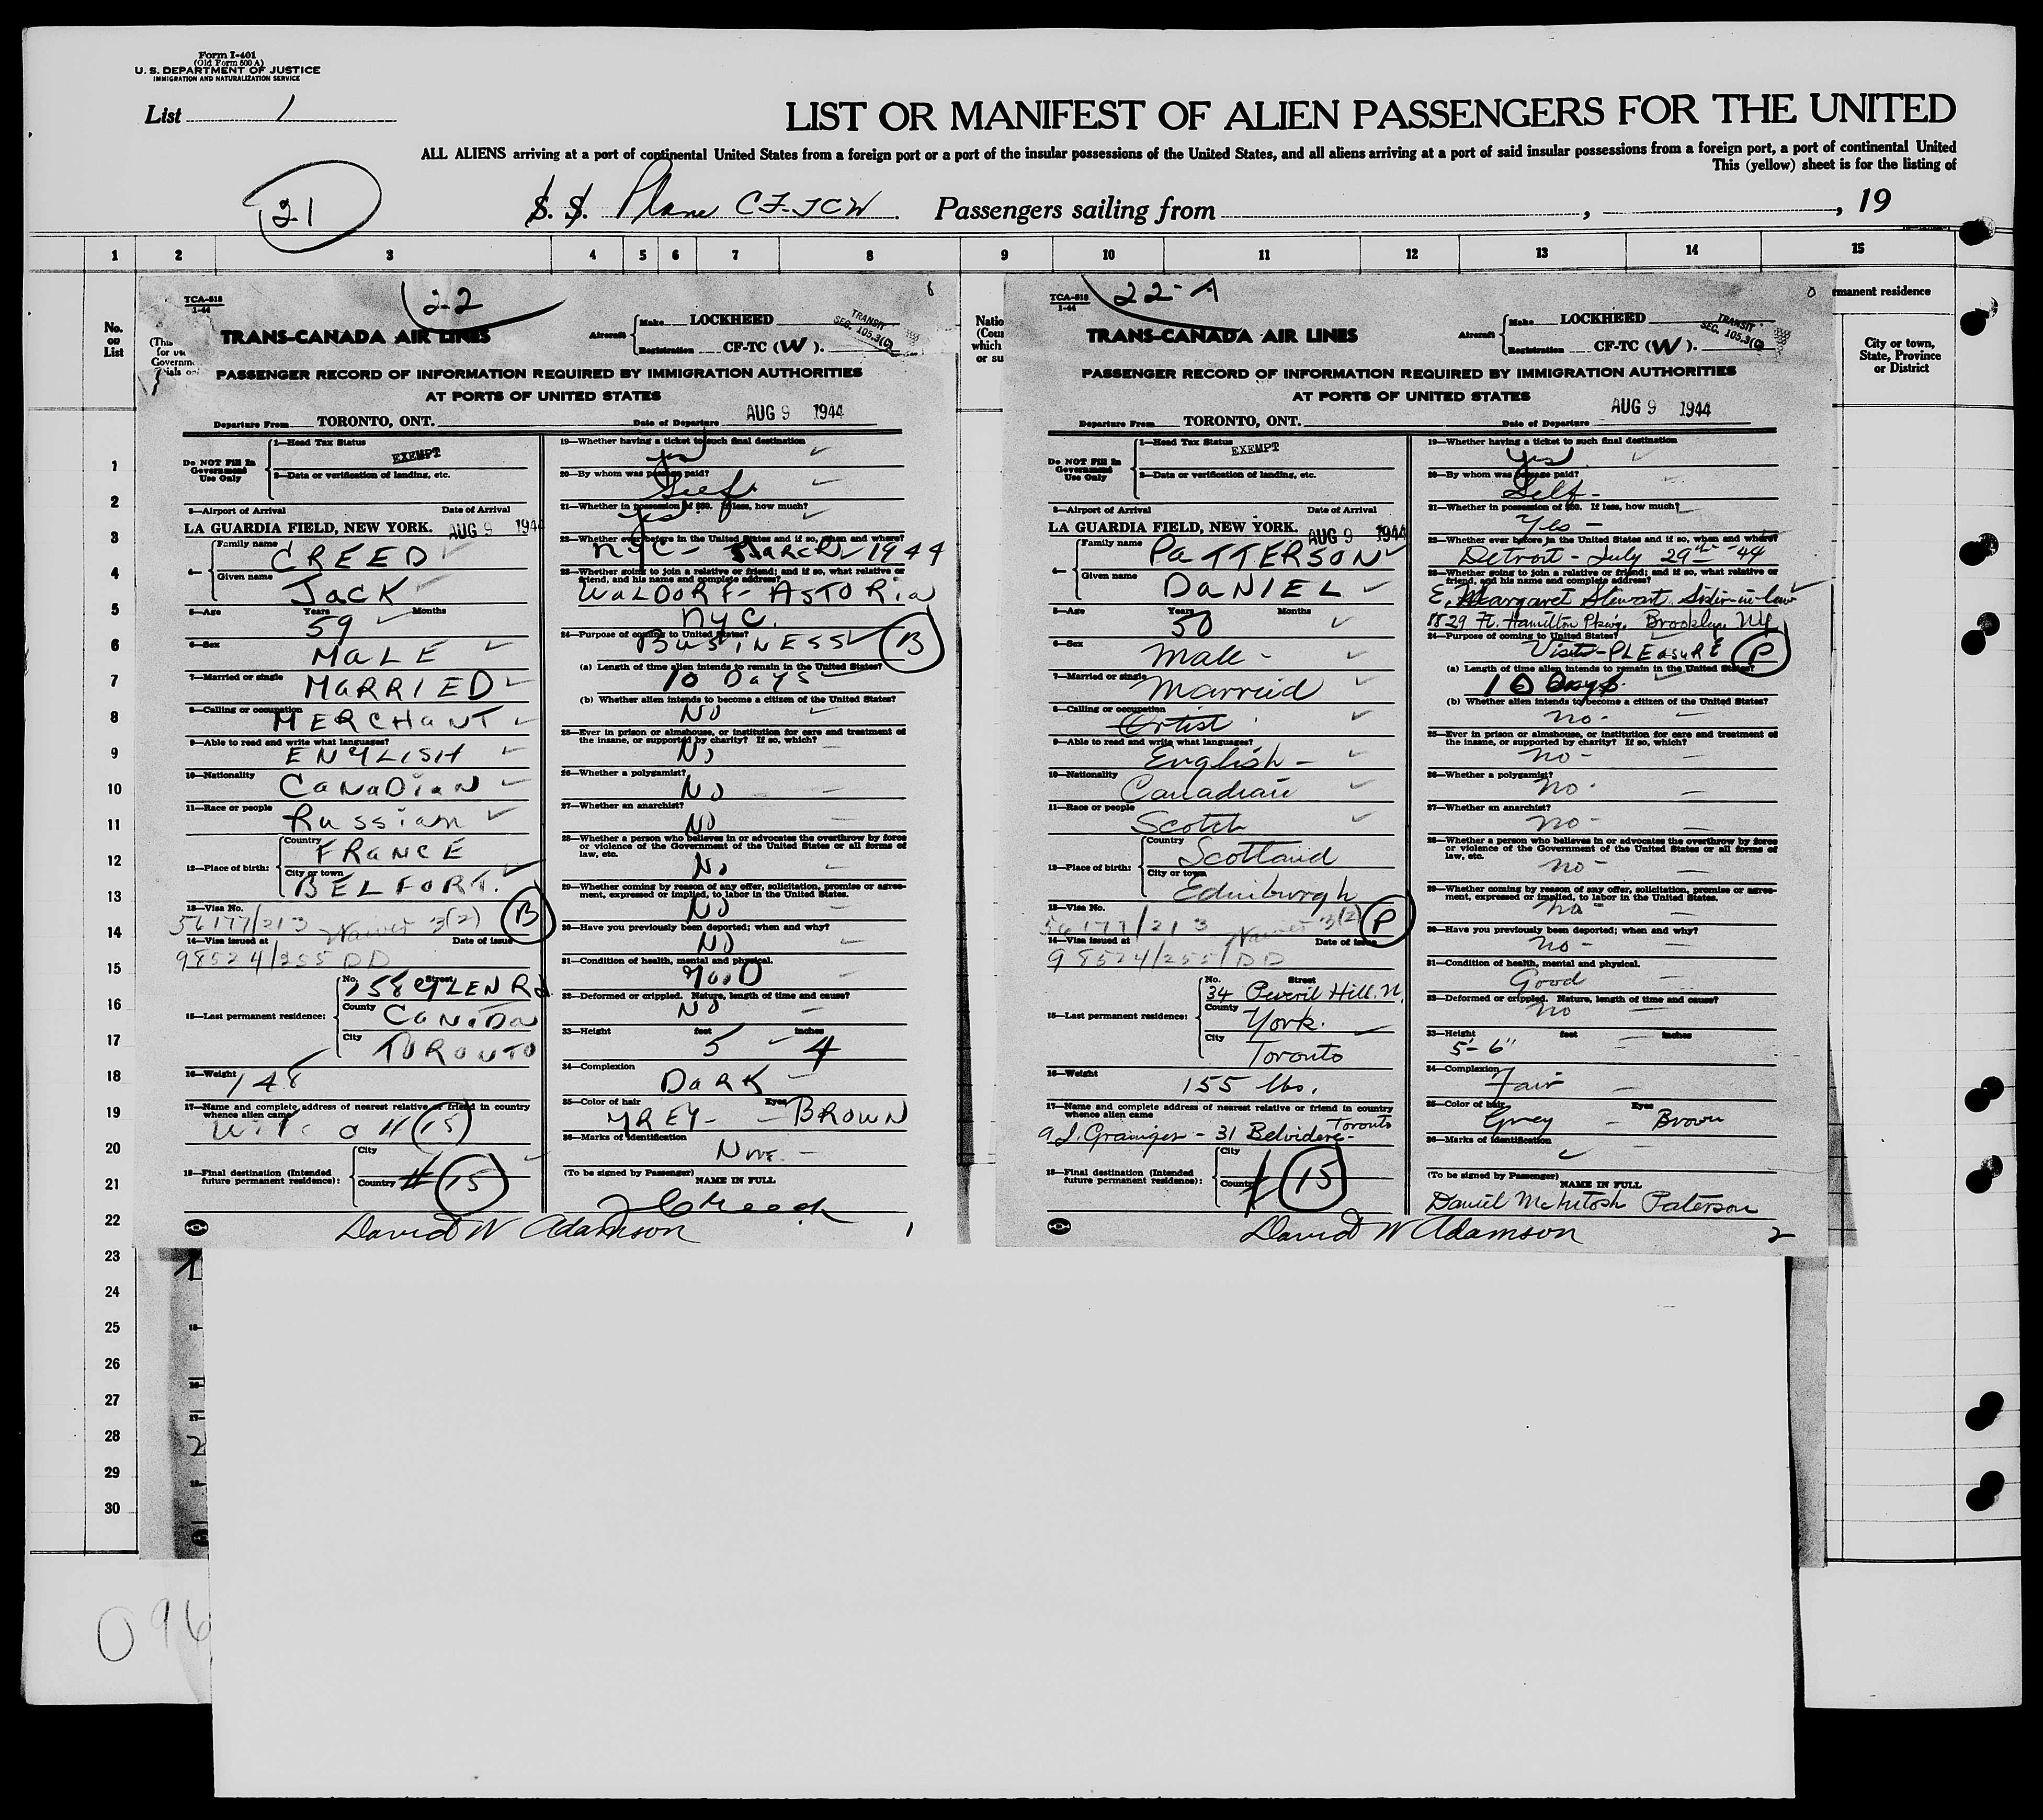 Form I-401
(Old Form 500 A)
U. S. DEPARTMENT OF JUSTICE
IMMIGRATION AND NATURALIZATION SERVICE
List 1
LIST OR MANIFEST OF ALIEN PASSENGERS FOR THE UNITED
ALL ALIENS arriving at a port of continental United States from a foreign port or a port of the insular possessions of the United States, and all aliens arriving at a port of said insular possessions from a foreign port, a port of continental United
This (yellow) sheet is for the listing of
21
S. S. Plane CF-TCW. Passengers sailing from , , 19
1 2 3 4 5 6 7 8 9 10 11 12 13 14 15
No. on List
(This
for use
Governm
ials on
Natio
(Coun
which
or su
manent residence
City or town, State, Province or District
1
2
3
4
5
6
7
8
9
10
11
12
13
14
15
16
17
18
19
20
21
22
23
24
25
26
27
28
29
30
096
TCA-518
1-44
22
TRANS-CANADA AIR LINES
Aircraft Make LOCKHEED
Registration CF-TC (W).
TRANSIT
SEC. 105.3(C)
PASSENGER RECORD OF INFORMATION REQUIRED BY IMMIGRATION AUTHORITIES
AT PORTS OF UNITED STATES
Departure From TORONTO, ONT. Date of Departure AUG 9 1944
Do NOT Fill In Government Use Only
1—Head Tax Status EXEMPT
2—Data or verification of landing, etc.
3—Airport of Arrival Date of Arrival
LA GUARDIA FIELD, NEW YORK. AUG 9 1944
4— Family name CREED
Given name JACK
5—Age Years Months 59
6—Sex MALE
7—Married or single MARRIED
8—Calling or occupation MERCHANT
9—Able to read and write what languages? ENGLISH
10—Nationality CANADIAN
11—Race or people Russian
12—Place of birth: Country FRANCE
City or town BELFORT.
13—Visa No. B
56177/213 Waiver 3(2)
14—Visa issued at Date of issue
98524/255 DD
15—Last permanent residence: No. Street 258 GLEN Rd
County CANADA
City TORONTO
16—Weight 148
17—Name and complete address of nearest relative or friend in country whence alien came
Wife a # 15
18—Final destination (Intended future permanent residence): City
Country # 15
19—Whether having a ticket to such final destination
yes
20—By whom was passage paid?
Self
21—Whether in possession of $50. If less, how much?
yes
22—Whether ever before in the United States and if so, when and where?
NYC - MARCH - 1944
23—Whether going to join a relative or friend; and if so, what relative or friend, and his name and complete address?
WALDORF - ASTORIA
NYC.
24—Purpose of coming to United States?
BUSINESS B
(a) Length of time alien intends to remain in the United States?
10 DAYS
(b) Whether alien intends to become a citizen of the United States?
NO
25—Ever in prison or almshouse, or institution for care and treatment of the insane, or supported by charity? If so, which?
NO
26—Whether a polygamist?
NO
27—Whether an anarchist?
NO
28—Whether a person who believes in or advocates the overthrow by force or violence of the Government of the United States or all forms of law, etc.
NO
29—Whether coming by reason of any offer, solicitation, promise or agreement, expressed or implied, to labor in the United States.
NO
30—Have you previously been deported; when and why?
NO
31—Condition of health, mental and physical.
GOOD
32—Deformed or crippled. Nature, length of time and cause?
NO
33—Height feet inches
5 4
34—Complexion
DARK
35—Color of hair Eyes
GREY - BROWN
36—Marks of identification
NONE
(To be signed by Passenger) NAME IN FULL
J Creed
David W Adamson 1
TCA-518
1-44
22-A
TRANS-CANADA AIR LINES
Aircraft Make LOCKHEED
Registration CF-TC (W).
TRANSIT
SEC. 105.3(C)
PASSENGER RECORD OF INFORMATION REQUIRED BY IMMIGRATION AUTHORITIES
AT PORTS OF UNITED STATES
Departure From TORONTO, ONT. Date of Departure AUG 9 1944
Do NOT Fill In Government Use Only
1—Head Tax Status EXEMPT
2—Data or verification of landing, etc.
3—Airport of Arrival Date of Arrival
LA GUARDIA FIELD, NEW YORK. AUG 9 1944
4— Family name PATTERSON
Given name DANIEL
5—Age Years Months 50
6—Sex Male -
7—Married or single Married
8—Calling or occupation Artist
9—Able to read and write what languages? English -
10—Nationality Canadian
11—Race or people Scotch
12—Place of birth: Country Scotland
City or town Edinburgh
13—Visa No. P
56177/213 Waiver 3(2)
14—Visa issued at Date of issue
98524/255/DD
15—Last permanent residence: No. Street 34 Peveril Hill. N.
County York.
City Toronto
16—Weight 155 lbs.
17—Name and complete address of nearest relative or friend in country whence alien came
A. J. Grainger - 31 Belvidere - Toronto
18—Final destination (Intended future permanent residence): City
Country # 15
19—Whether having a ticket to such final destination
Yes
20—By whom was passage paid?
Self -
21—Whether in possession of $50. If less, how much?
Yes -
22—Whether ever before in the United States and if so, when and where?
Detroit - July 29th - 44
23—Whether going to join a relative or friend; and if so, what relative or friend, and his name and complete address?
E. Margaret Stewart. Sister-in-law
8829 Ft. Hamilton Pkwy. Brooklyn NY
24—Purpose of coming to United States?
Visit - PLEASURE P
(a) Length of time alien intends to remain in the United States?
10 Days.
(b) Whether alien intends to become a citizen of the United States?
no -
25—Ever in prison or almshouse, or institution for care and treatment of the insane, or supported by charity? If so, which?
no -
26—Whether a polygamist?
no -
27—Whether an anarchist?
no -
28—Whether a person who believes in or advocates the overthrow by force or violence of the Government of the United States or all forms of law, etc.
no -
29—Whether coming by reason of any offer, solicitation, promise or agreement, expressed or implied, to labor in the United States.
no -
30—Have you previously been deported; when and why?
no -
31—Condition of health, mental and physical.
Good
32—Deformed or crippled. Nature, length of time and cause?
no
33—Height feet inches
5'- 6"
34—Complexion
Fair
35—Color of hair Eyes
Grey - Brown
36—Marks of identification
(To be signed by Passenger) NAME IN FULL
Daniel McIntosh Paterson
David W Adamson 2